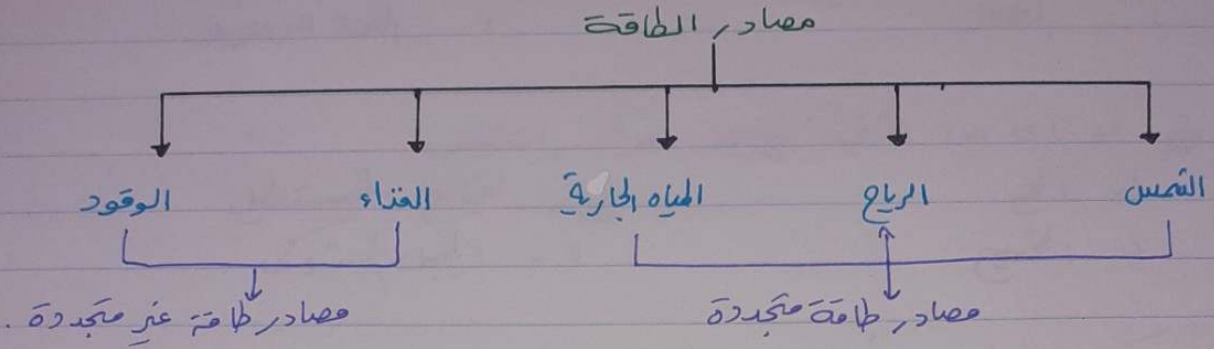 مصادر الطاقة
الشمس الرياح المياه الجارية الغذاء الوقود
مصادر طاقة متجددة مصادر طاقة غير متجددة .